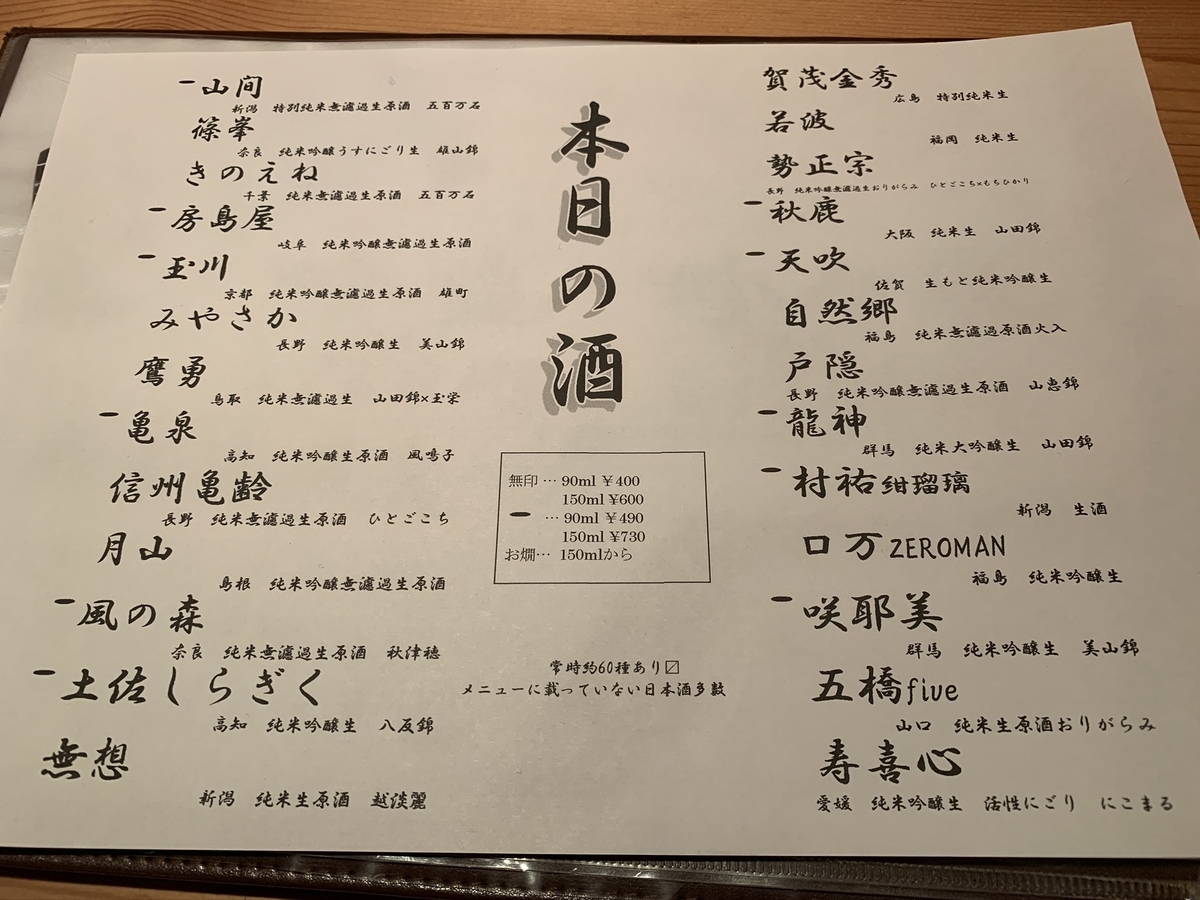 一山間
新潟 特別純米無濾過生原酒 五百万石
篠峯
奈良 純米吟醸うすにごり生 雄山錦
きのえね
千葉 純米無濾過生原酒 五百万石
一房島屋
岐阜 純米吟醸無濾過生原酒
一玉川
京都 純米吟醸無濾過生原酒 雄町
みやさか
長野 純米吟醸生 美山錦
鷹勇
鳥取 純米無濾過生 山田錦×玉栄
一亀泉
高知 純米吟醸生原酒 風鳴子
信州亀齢
長野 純米無濾過生原酒 ひとごこち
月山
島根 純米吟醸無濾過生原酒
一風の森
奈良 純米無濾過生原酒 秋津穂
一土佐しらぎく
高知 純米吟醸生 八反錦
無想
新潟 純米生原酒 越淡麗
本日の酒
無印…90ml ¥400
150ml ¥600
一…90ml ¥490
150ml ¥730
お燗…150mlから
常時約60種あり〼
メニューに載っていない日本酒多数
賀茂金秀
広島 特別純米生
若波
福岡 純米生
勢正宗
長野 純米吟醸無濾過生おりがらみ ひとごこち×もちひかり
一秋鹿
大阪 純米生 山田錦
一天吹
佐賀 生もと純米吟醸生
自然郷
福島 純米無濾過原酒火入
戸隠
長野 純米吟醸無濾過生原酒 山恵錦
一龍神
群馬 純米大吟醸生 山田錦
一村祐紺瑠璃
新潟 生酒
ロ万ZEROMAN
福島 純米吟醸生
一咲耶美
群馬 純米吟醸生 美山錦
五橋five
山口 純米生原酒おりがらみ
寿喜心
愛媛 純米吟醸生 活性にごり にこまる